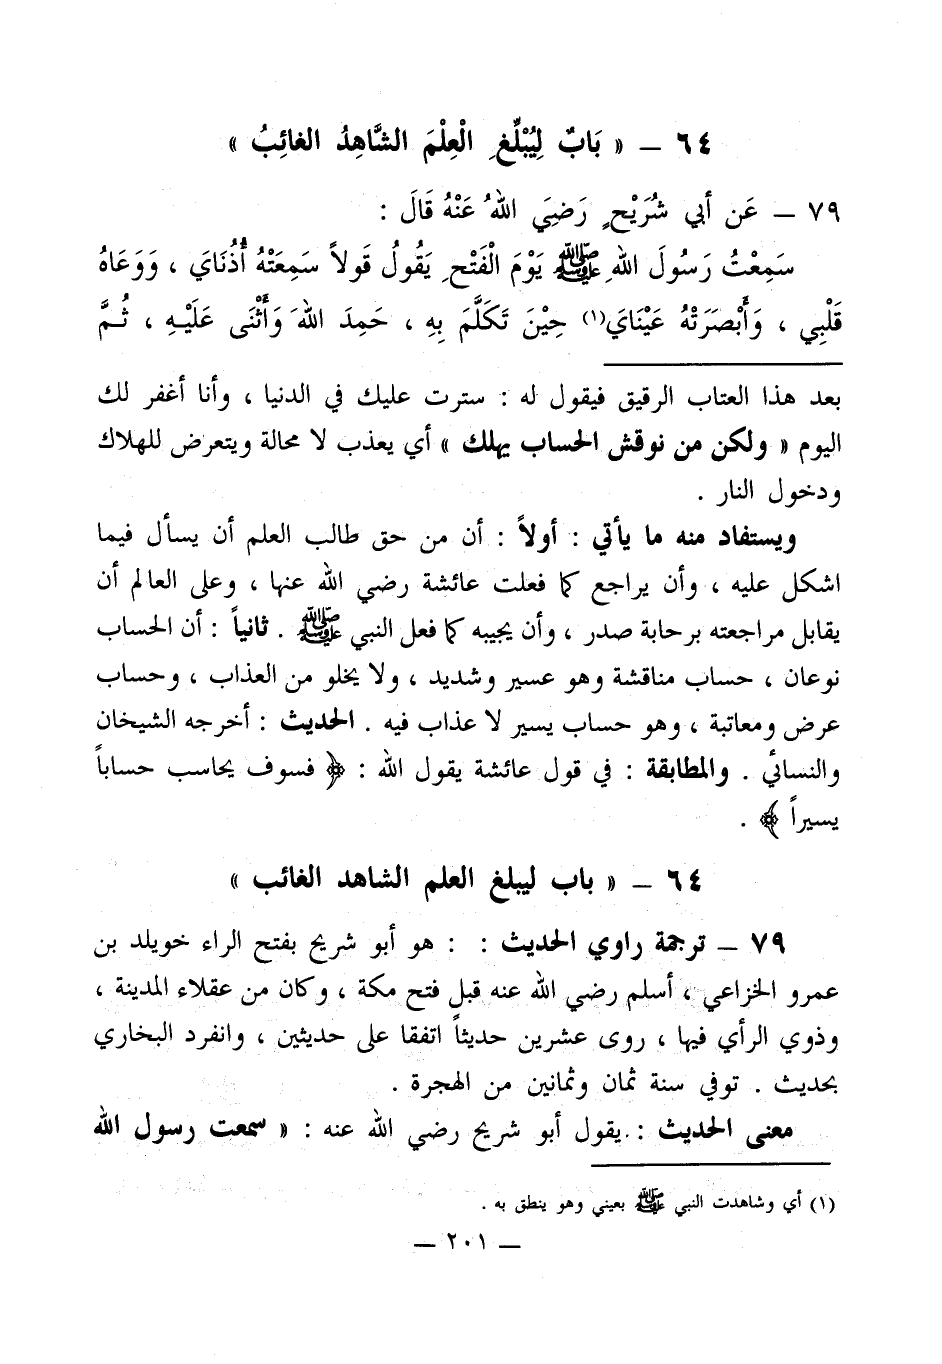 ٦٤ — « بَابٌ لِيُبْلِّغِ الْعِلْمَ الشَّاهِدُ الغائِبُ »
٧٩ — عَن أبي شُرَيْحٍ رَضِيَ اللهُ عَنْهُ قَالَ :
سَمِعْتُ رَسُولَ اللهِ ﷺ يَوْمَ الْفَتْحِ يَقُولُ قَولاً سَمِعَتْهُ أُذُنَاي ، وَوَعَاهُ
قَلْبِي ، وَأَبْصَرَتْهُ عَيْنَايَ(١) حِيْنَ تَكَلَّمَ بِهِ ، حَمِدَ اللهَ وَأَثْنَى عَلَيْهِ ، ثُمَّ
بعد هذا العتاب الرقيق فيقول له : سترت عليك في الدنيا ، وأنا أغفر لك
اليوم « ولكن من نوقش الحساب يهلك » أي يعذب لا محالة ويتعرض للهلاك
ودخول النار .
ويستفاد منه ما يأتي : أولاً : أن من حق طالب العلم أن يسأل فيما
اشكل عليه ، وأن يراجع كما فعلت عائشة رضي الله عنها ، وعلى العالم أن
يقابل مراجعته برحابة صدر ، وأن يجيبه كما فعل النبي ﷺ . ثانياً : أن الحساب
نوعان ، حساب مناقشة وهو عسير وشديد ، ولا يخلو من العذاب ، وحساب
عرض ومعاتبة ، وهو حساب يسير لا عذاب فيه . الحديث : أخرجه الشيخان
والنسائي . والمطابقة : في قول عائشة يقول الله : ﴿ فسوف يحاسب حساباً
يسيراً ﴾ .
٦٤ — « باب ليبلغ العلم الشاهد الغائب »
٧٩ — ترجمة راوي الحديث : : هو أبو شريح بفتح الراء خويلد بن
عمرو الخزاعي ، أسلم رضي الله عنه قبل فتح مكة ، وكان من عقلاء المدينة ،
وذوي الرأي فيها ، روى عشرين حديثاً اتفقا على حديثين ، وانفرد البخاري
بحديث . توفي سنة ثمان وثمانين من الهجرة .
معنى الحديث : يقول أبو شريح رضي الله عنه : « سمعت رسول الله
(١) أي وشاهدت النبي ﷺ بعيني وهو ينطق به .
— ٢٠١ —